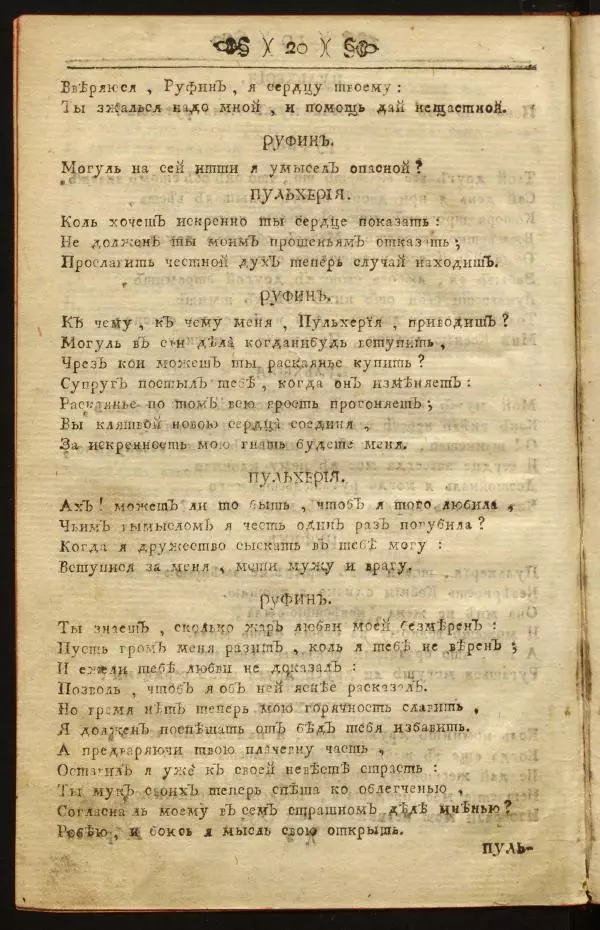 )( 20 )(
Ввѣряюся , Руфинъ , я сердцу твоему :
Ты зжалься надо мной , и помощь дай нещастной.
РУФИНЪ.
Могуль на сей итти я умыселъ опасной ?
ПУЛЬХЕРІЯ.
Коль хочешъ искренно ты сердце показать :
Не долженъ ты моимъ прошеньямъ отказать ;
Прославить честной духъ теперь случай находишъ.
РУФИНЪ.
Къ чему , къ чему меня , Пульхерїя , приводишъ ?
Могуль въ сїи дѣла когданибудь вступить ,
Чрезъ кои можешъ ты раскаянье купить ?
Супругъ постылъ тебѣ , когда онъ измѣняетъ :
Раскаянье по томъ всю ярость прогоняетъ ;
Вы клятвой новою сердца соединя ,
За искренность мою гнать будете меня.
ПУЛЬХЕРІЯ.
Ахъ ! можетъ ли то быть , чтобъ я того любила ,
Чьимъ вымысломъ я честь одинъ разъ погубила ?
Когда я дружество сыскать въ тебѣ могу :
Вступися за меня , мсти мужу и врагу.
РУФИНЪ.
Ты знаешъ , сколько жаръ любви моей безмѣренъ :
Пусть громъ меня разитъ , коль я тебѣ не вѣренъ ;
И ежели тебѣ любви не доказалъ :
Позволь , чтобъ я объ ней яснѣе расказалъ.
Но время нѣтъ теперь мою горячность славить ,
Я долженъ поспѣшать отъ бѣдъ тебя избавить.
А предваряючи твою плачевну часть ,
Оставилъ я уже къ своей невѣстѣ страсть :
Ты мукъ своихъ теперь спѣша ко облегченью ,
Согласна ль моему въ семъ страшномъ дѣлѣ мнѣнью ?
Робѣю , и боюсь я мысль свою открышь.
ПУЛЬ-